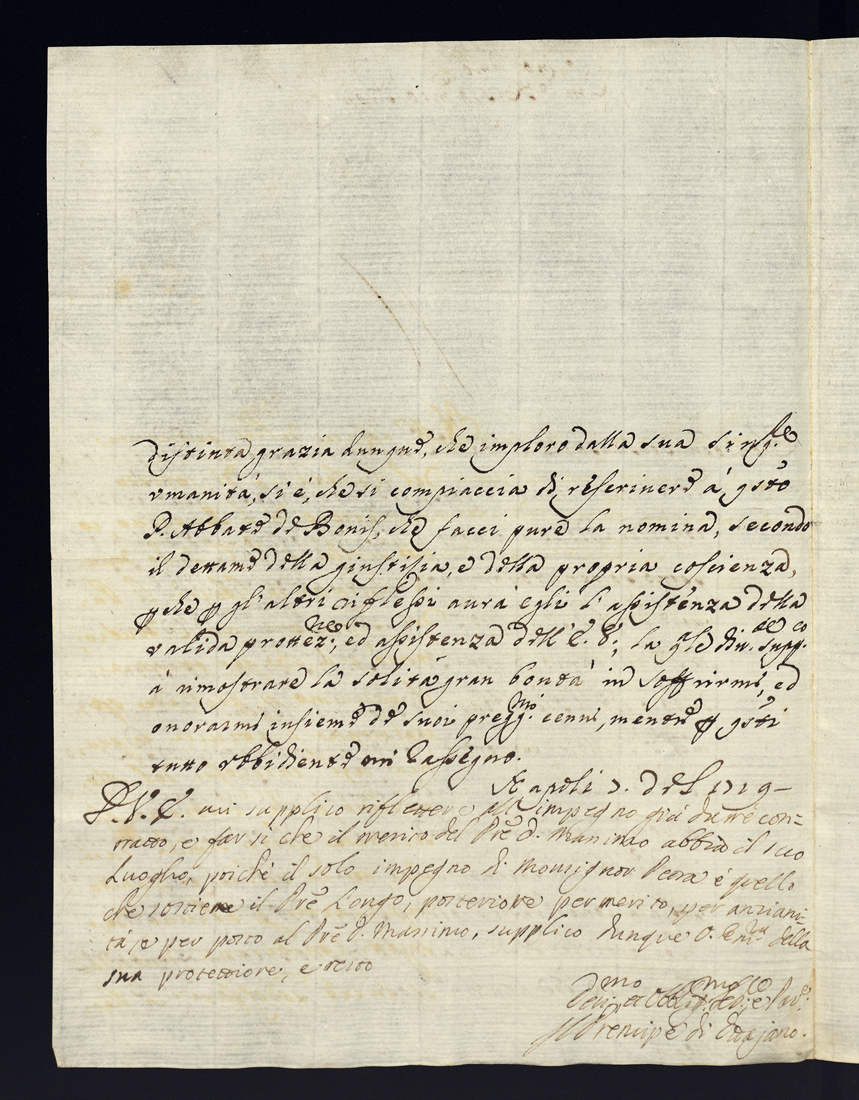 distinta grazia dunque, che imploro dalla sua sing.le
umanità, si è, che si compiaccia di riscrivere à q̃sto
P. Abbate de Bonis, che facci pure la nomina, secondo
il dettame della giustizia, e della propria coscienza,
p̱ che p̱ gl'altri riflessi aurà egli l'assistenza della
valida protez.ne, ed assistenza dell'E. V., la q̃le div.te supp.co
à rimostrare la solita gran bontà in soffrirmi, ed
onorarmi insieme de suoi pregg.mi cenni, mentre p̱ q̃sti
tutto obbidiente mi rassegno.
Napoli 7. del 1719
D. V. E. mi supplico riflettere all'impegno già da me con=
tratto, e far si che il merito del Pr̃e D. Massimo abbia il suo
Luogho, poiche il solo impegno di Monsignor Petra è quello
che sostiene il Pr̃e Longo, posteriore per merito, per anziani=
tà, e per posto al Pr̃e D. Massimo, supplico dunque V. Em.za della
sua protettione, e resto
Dev.mo et Obblig.mo
Il Prencipe di Ottajano.